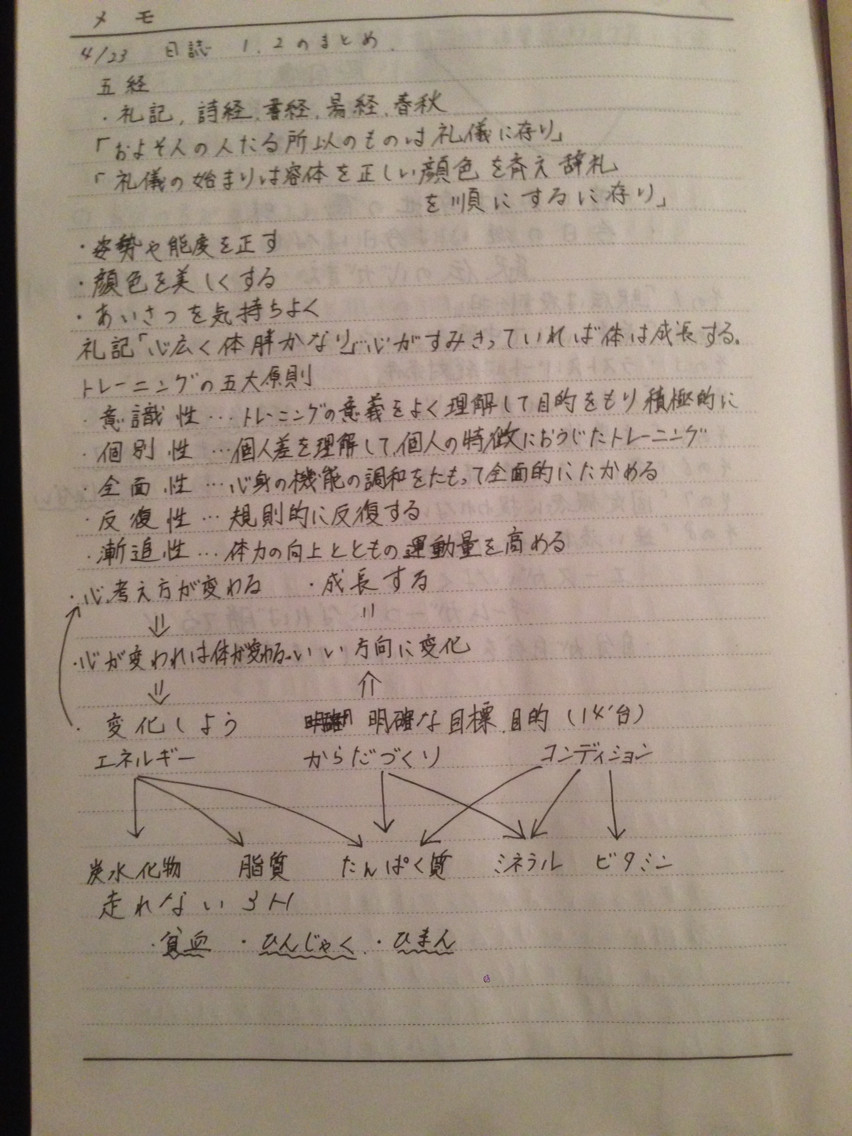 メモ
4/23 日誌 1.2のまとめ.
五経
・礼記,詩経,書経,易経,春秋
「およそ人の人たる所以のものは礼儀に存り」
「礼儀の始まりは容体を正しい顔色を斉え辞礼
を順にするに存り」
・姿勢や態度を正す
・顔色を美しくする
・あいさつを気持ちよく
礼記「心広く体胖かなり」心がすみきっていれば体は成長する.
トレーニングの五大原則
・意識性…トレーニングの意義をよく理解して目的をもり積極的に
・個別性…個人差を理解して,個人の特徴におうじたトレーニング
・全面性…心身の機能の調和をたもって全面的にたかめる
・反復性…規則的に反復する
・漸追性…体力の向上とともの運動量を高める
・心.考え方が変わる ・成長する
⇓ 〃
・心が変われは体が変わる。いい方向に変化
⇓ ⇑
・変化しよう 明確な目標.目的(14'台)
エネルギー からだづくり コンディション
炭水化物 脂質 たんぱく質 ミネラル ビタミン
走れない3H
・貧血 ・ひんじゃく ・ひまん